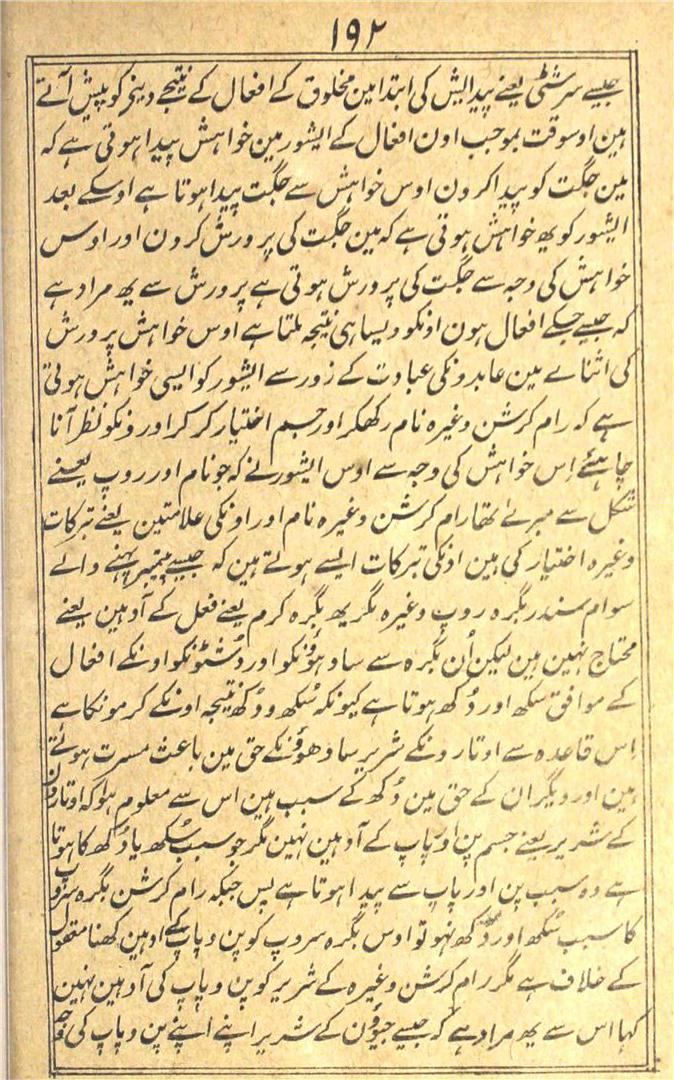 ۱۹۲
جیسے سرشٹی یعنے پیدایش کی ابتدا مین مخلوق کے افعال کے نتیجے دینے کو پیش آتے
ہین اوسوقت بموجب اون افعال کے ایشور مین خواہش پیدا ہوتی ہے کہ
مین جگت کو پیدا کرون اوس خواہش سے جگت پیدا ہوتا ہے اوسکے بعد
ایشور کو یہ خواہش ہوتی ہے کہ مین جگت کی پرورش کرون اور اوس
خواہش کی وجہ سے جگت کی پرورش ہوتی ہے پرورش سے یہ مراد ہے
کہ جیسے جسکے افعال ہون اونکو ویسا ہی نتیجہ ملتا ہے اوس خواہش پرورش
کی اثناے مین عابدونکی عبادت کے زور سے ایشور کو ایسی خواہش ہوتی
ہے کہ رام کرشن وغیرہ نام رکھکر اور جسم اختیار کر کر اورونکو نظر آنا
چاہئے اِس خواہش کی وجہ سے اوس ایشور نے کہ جو نام اور روپ یعنے
شکل سے مبرّے تھا رام کرشن وغیرہ نام اور اونکی علامتین یعنے تبرکات
وغیرہ اختیار کی ہین اونکی تبرکات ایسے ہوتے ہین کہ جیسے پیتمبر پہنے والے
سوام سندر بگرہ روپ وغیرہ مگر یہ بگرہ کرم یعنے فعل کے آدہین یعنے
محتاج نہین ہین لیکن اُن بگرہ سے سادہوؤنکو اور دُشٹونکو اونکے افعال
کے موافق سکھ اور دُکھ ہوتا ہے کیونکہ سُکھ و دُکھ نتیجہ اونکے کرمونکا ہے
اِس قاعدہ سے اوتارونکے شریر سادھوؤنکے حق مین باعث مسرت ہوتے
ہین اور دیگران کے حق مین دُکھ کے سبب ہین اس سے معلوم ہوا کہ اوتارون
کے شریر یعنے جسم پن اور پاپ کے آدہین نہین مگر جو سبب سُکھ یا دُکھ کا ہوتا
ہے وہ سبب پن اور پاپ سے پیدا ہوتا ہے پس جبکہ رام کرشن بگرہ سروپ
کا سبب سُکھ اور دُکھ نہو تو اوس بگرہ سروپ کو پن و پاپ کے ادہین کہنا معقول
کے خلاف ہے مگر رام کرشن وغیرہ کے شریر کو پن و پاپ کی آدہین نہین
کہا اس سے یہ مراد ہے کہ جیسے جیؤن کے شریر اپنے اپنے پن و پاپ کی